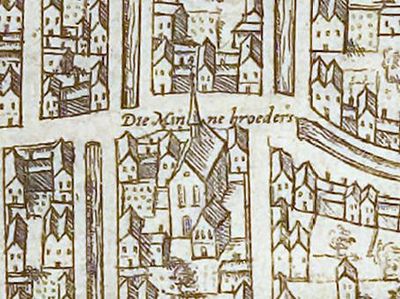 Die Min ne broeders